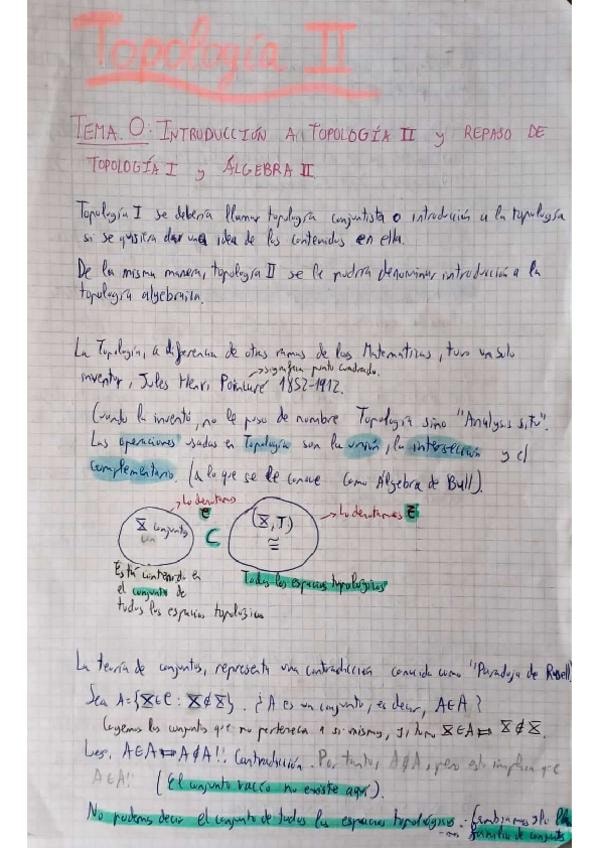 Topología II
TEMA. 0: INTRODUCCIÓN A TOPOLOGÍA II y REPASO DE
TOPOLOGÍA I y ÁLGEBRA II
Topología I se debería llamar topología conjuntista o introducción a la topología
si se quisiera dar una idea de los contenidos en ella.
De la misma manera, topología II se le podría denominar introducción a la
topología algebraica.
La Topología, a diferencia de otras ramas de las Matemáticas, tuvo un solo
significa punto cuadrado.
inventor, Jules Henri Poincaré 1852-1912.
Cuando la inventó, no le puso de nombre Topología sino "Analysis situ".
Las operaciones usadas en Topología son la unión, la intersección y el
complementario. (A lo que se le conoce como Álgebra de Bull).
Lo denotamos
C
X conjunto
⊂
(X, T)
≅
Lo denotamos
Está contenido en
el conjunto de
todos los espacios topológicos
Todos los espacios topológicos
La teoría de conjuntos, representa una contradicción conocida como "Paradoja de Rusell
Sea A={X∈C : X∉X}. ¿A es un conjunto, es decir, A∈A?
Cogemos los conjuntos que no pertenecen a si mismos, X∈A ⟺ X∉X.
Luego, A∈A ⟺ A∉A!! Contradicción. Por tanto, A∉A, pero esto implica que
A∈A! (El conjunto vacío no existe aquí).
No podemos decir el conjunto de todos los espacios topológicos.
familia de conjuntos